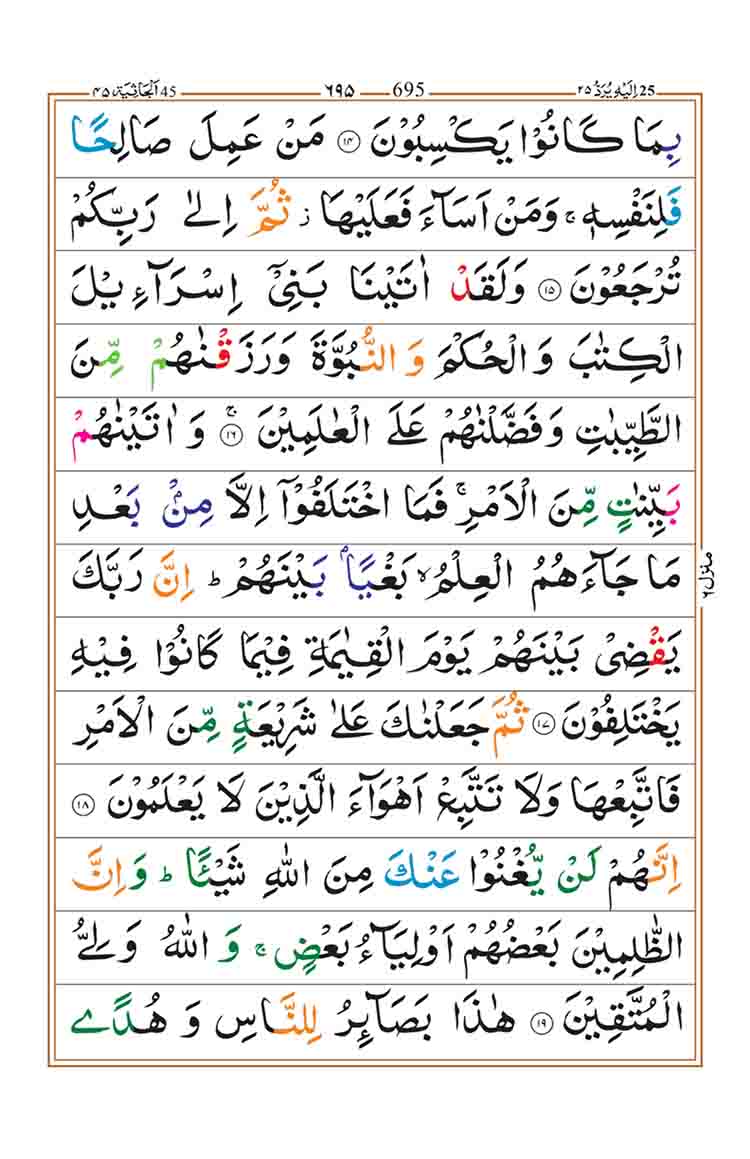 25 اِلَيْهِ يُرَدُّ ٢٥ 695 ۶۹۵ 45 اَلْجَاثِيَة ۴۵
بِمَا كَانُوْا يَكْسِبُوْنَ ۱۴ مَنْ عَمِلَ صَالِحًا
فَلِنَفْسِهٖ ۚ وَمَنْ اَسَآءَ فَعَلَيْهَا ز ثُمَّ اِلٰى رَبِّكُمْ
تُرْجَعُوْنَ ۱۵ وَلَقَدْ اٰتَيْنَا بَنِيْٓ اِسْرَآءِيْلَ
الْكِتٰبَ وَالْحُكْمَ وَالنُّبُوَّةَ وَرَزَقْنٰهُمْ مِّنَ
الطَّيِّبٰتِ وَفَضَّلْنٰهُمْ عَلَى الْعٰلَمِيْنَ ۱۶ ۚ وَاٰتَيْنٰهُمْ
بَيِّنٰتٍ مِّنَ الْاَمْرِ ۚ فَمَا اخْتَلَفُوْٓا اِلَّا مِنْۢ بَعْدِ
مَا جَآءَهُمُ الْعِلْمُ ۙ بَغْيًاۢ بَيْنَهُمْ ؕ اِنَّ رَبَّكَ
يَقْضِيْ بَيْنَهُمْ يَوْمَ الْقِيٰمَةِ فِيْمَا كَانُوْا فِيْهِ
يَخْتَلِفُوْنَ ۱۷ ثُمَّ جَعَلْنٰكَ عَلٰى شَرِيْعَةٍ مِّنَ الْاَمْرِ
فَاتَّبِعْهَا وَلَا تَتَّبِعْ اَهْوَآءَ الَّذِيْنَ لَا يَعْلَمُوْنَ ۱۸
اِنَّهُمْ لَنْ يُّغْنُوْا عَنْكَ مِنَ اللّٰهِ شَيْئًا ؕ وَاِنَّ
الظّٰلِمِيْنَ بَعْضُهُمْ اَوْلِيَآءُ بَعْضٍ ۚ وَاللّٰهُ وَلِيُّ
الْمُتَّقِيْنَ ۱۹ هٰذَا بَصَآئِرُ لِلنَّاسِ وَهُدًى
منزل ۶